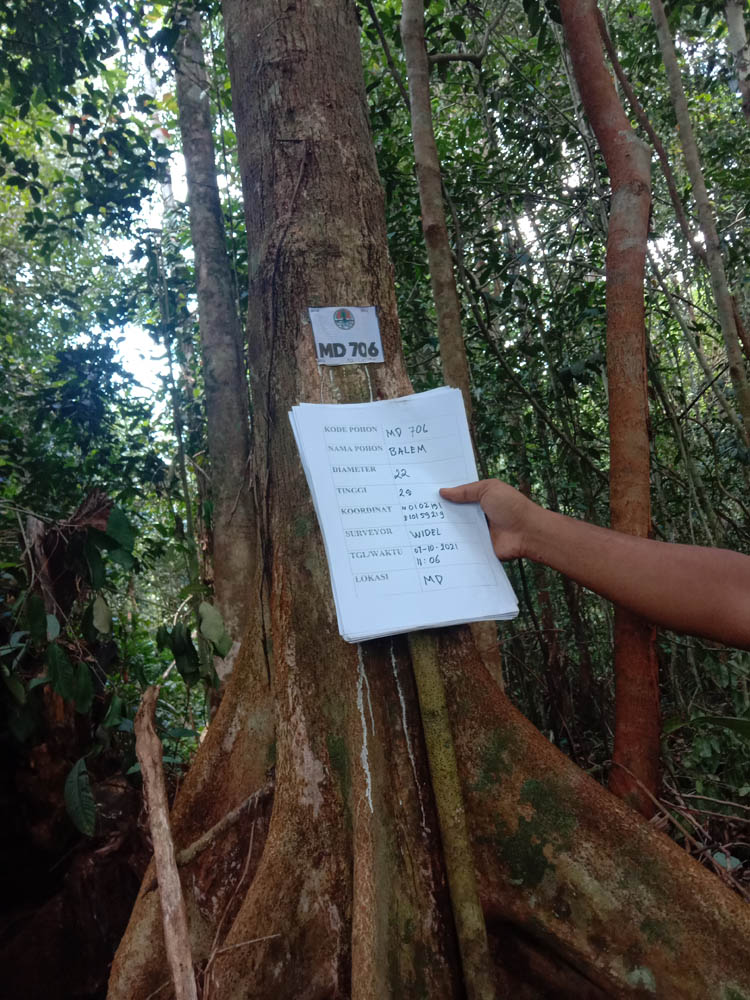 MD 706
KODE POHON MD 706
NAMA POHON BALEM
DIAMETER 22
TINGGI 28
KOORDINAT N 01 02 191
E 101 59 219
SURVEYOR WIDEL
TGL/WAKTU 07-10-2021
11:06
LOKASI MD